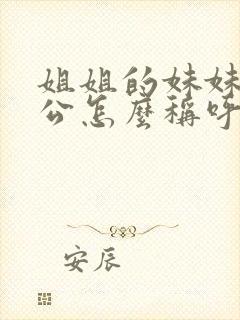 姐姐的妹妹
公怎麼稱呼
安辰